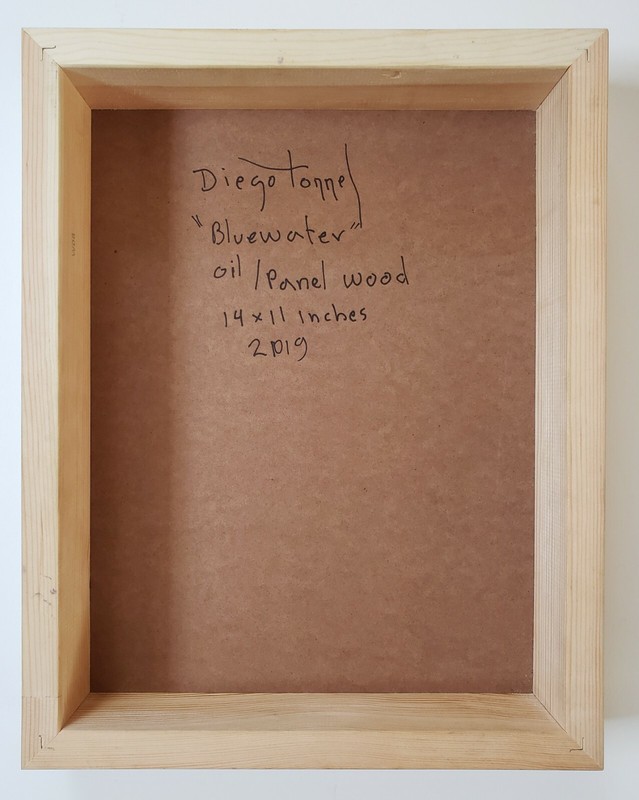 Diego Tonnel
"Bluewater"
oil / Panel wood
14 x 11 inches
2019